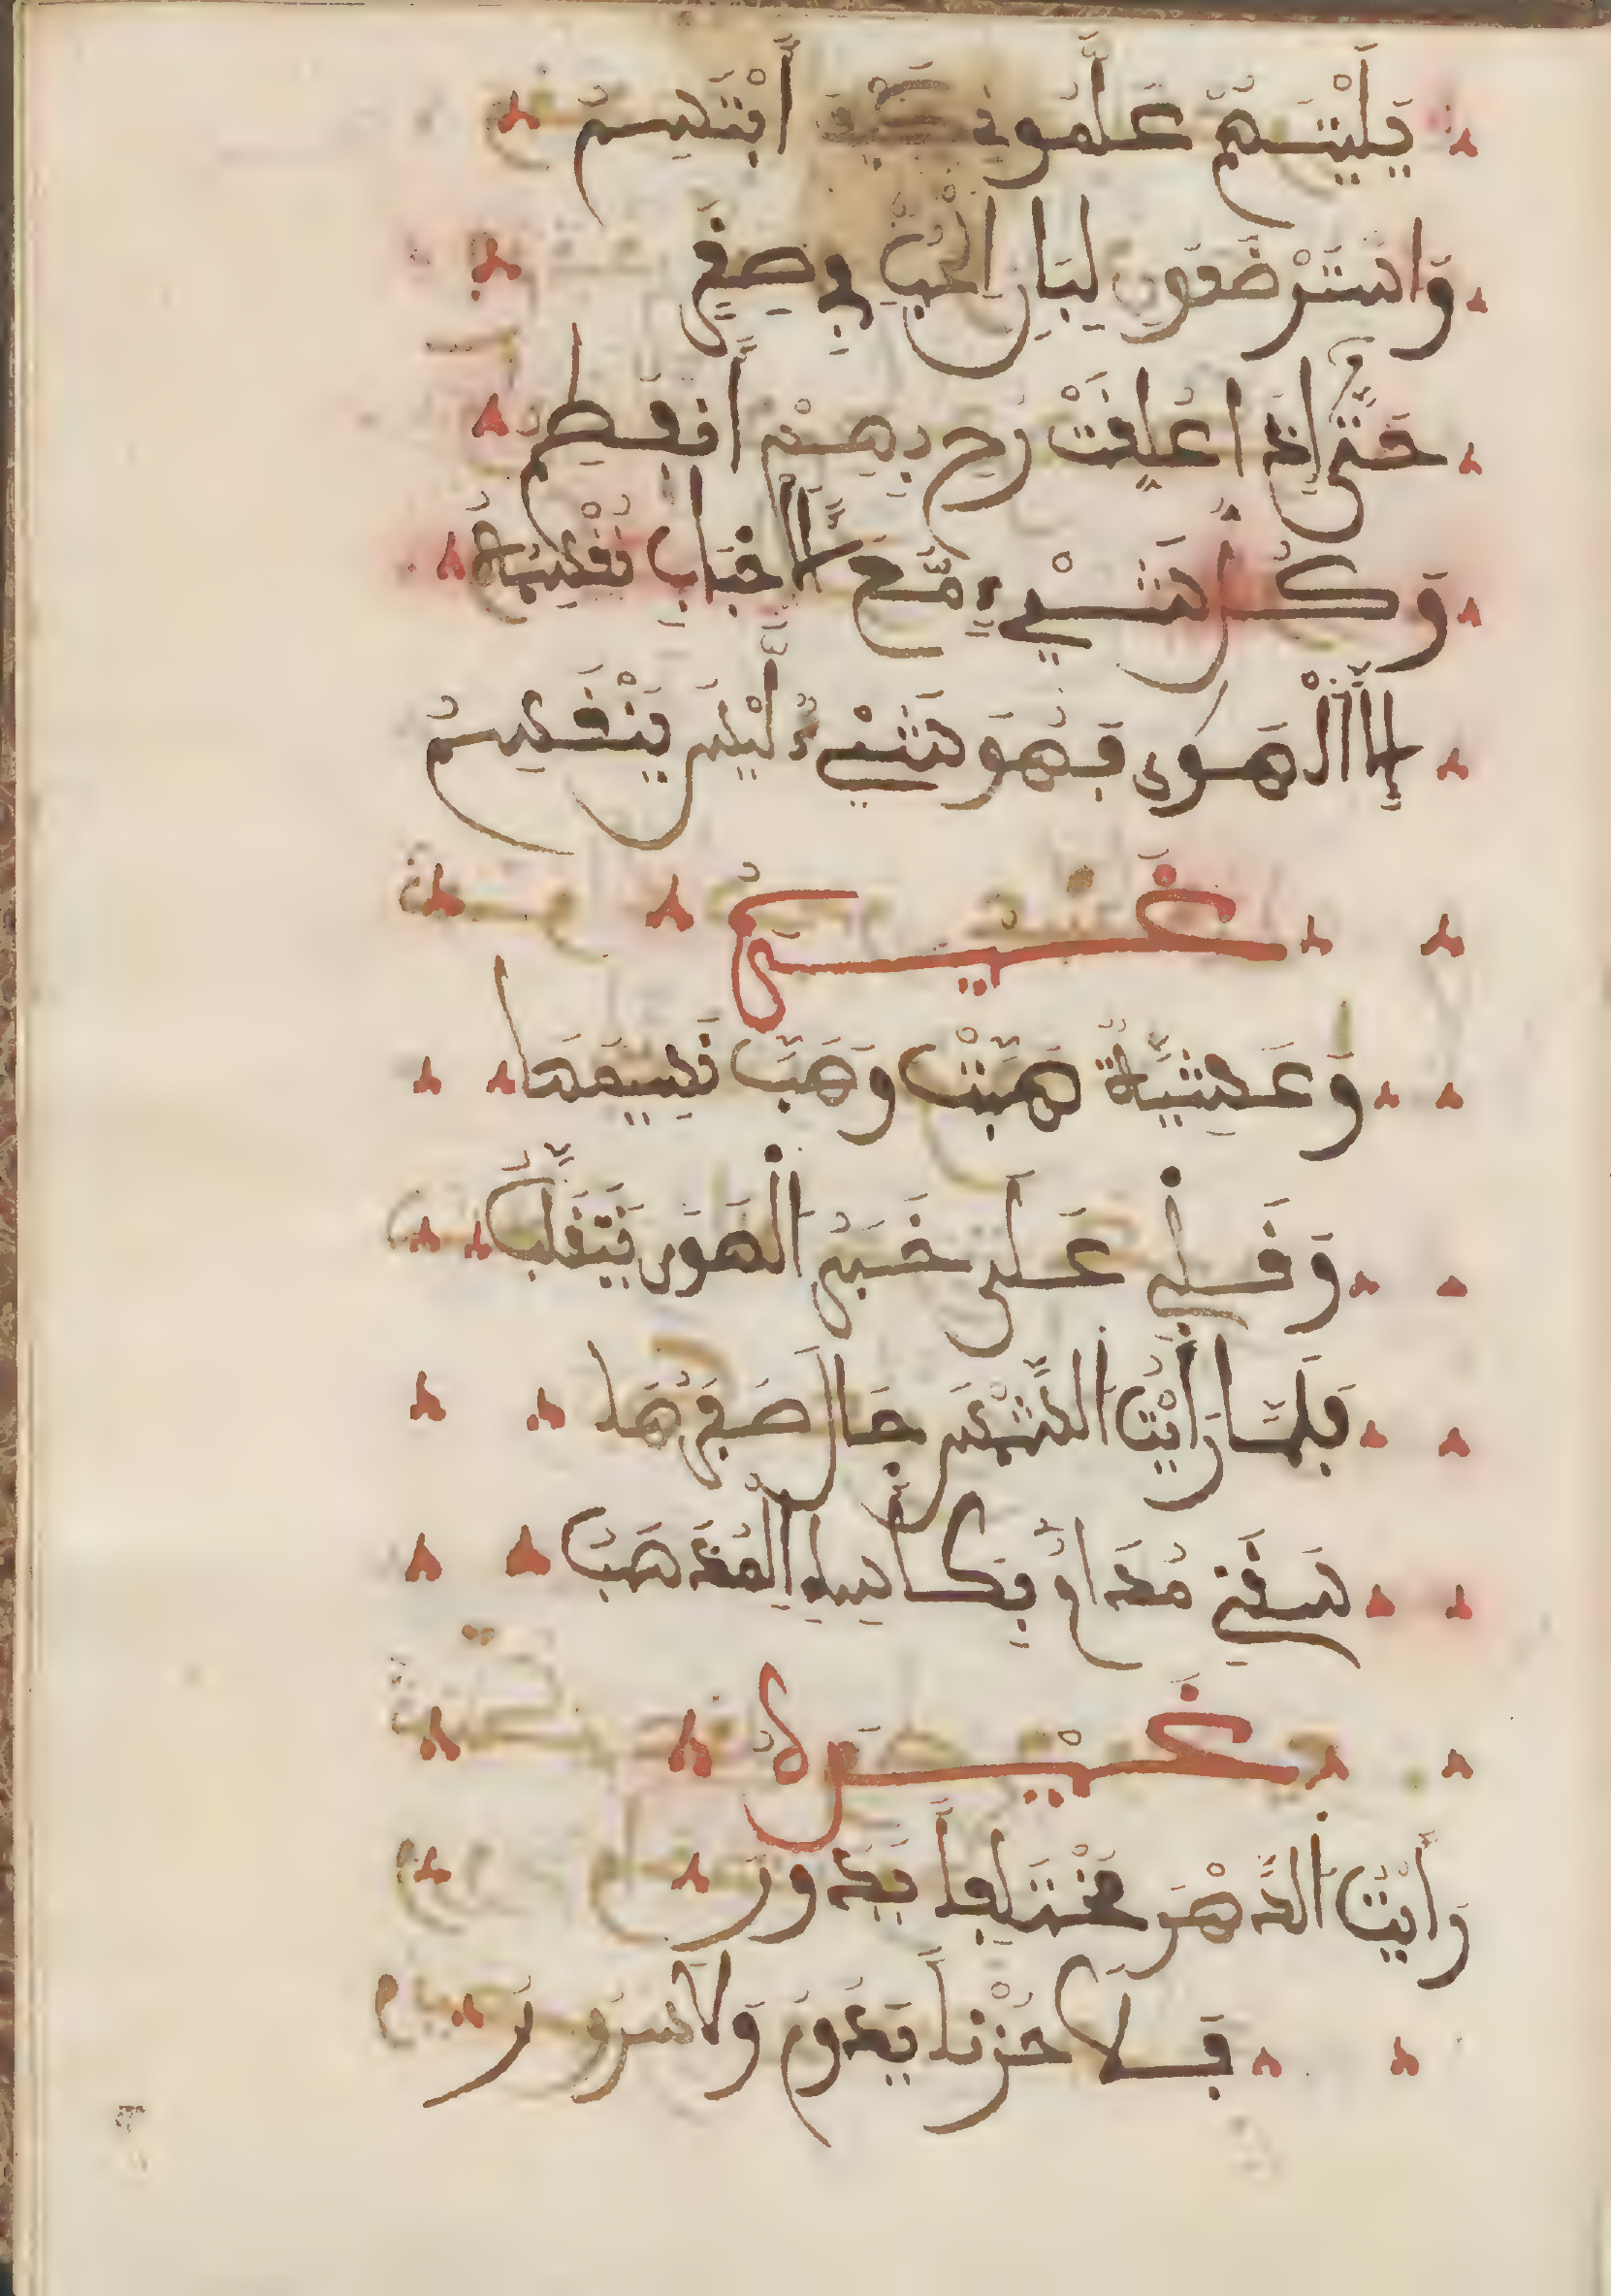 يَلَيْتَهُمْ عَلَّمُونِي كَيْفَ أَبْتَسِمُ
وَاسْتَرْضَعُونِي لِبَانَ الْحُبِّ فِي صِغَرِي
حَتَّى إِذَا عَلِقَتْ رُوحِي بِهِمْ انفَطَمُ
وَكُلُّ شَيْءٍ مَّعَ الَاحْبَابِ نُقْسِمُهُ
إِلَّا الْهَوَى فَهُوَ شَيْءٌ لَيْسَ يَنْقَسِمُ
غَيْرُهُ
وَعَشِيَّةٌ هَبَّتْ وَهَبَّ نَسِيمُهَا
وَقَلْبِي عَلَى جَمْرِ الْهَوَى يَتَقَلَّبُ
فَلَمَّا رَأَيْتُ الشَّمْسَ حَالَ صَفَرُهَا
سَقَتْنِي مُدَامٌ بِكَأْسِي الْمُذَهَّبُ
غَيْرُهُ
رَأَيْتُ الدَّهْرَ مُخْتَلِفاً يَدُورُ
فَلَا حُزْناً يَدُومُ وَلَا سُرُورُ